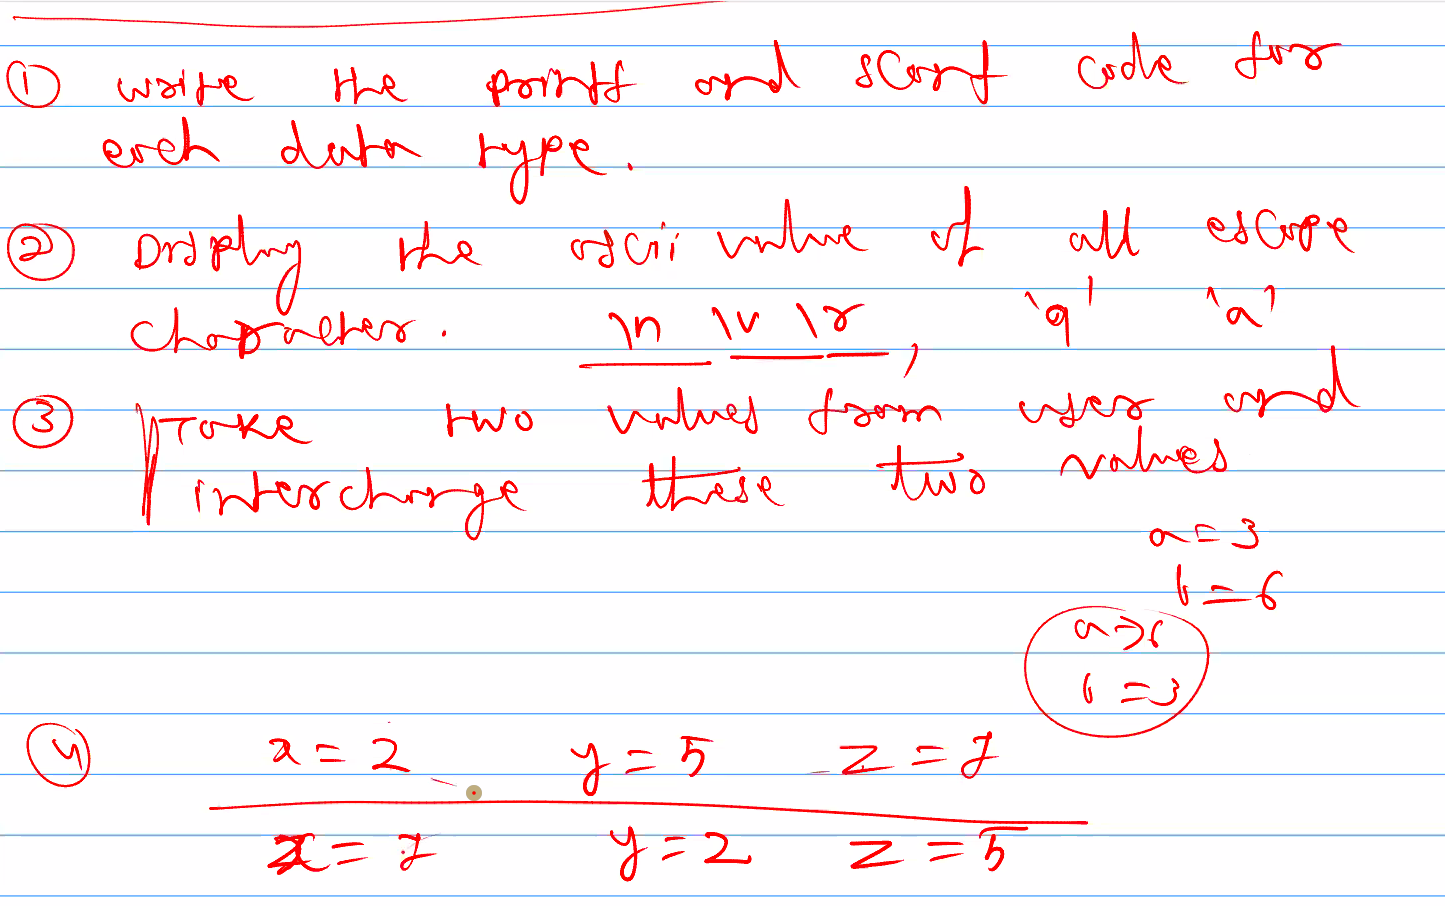 ① write the printf and scanf code for
each data type.
② Display the ascii value of all escape
character. \n \v \r, 'q' 'a'
③ Take two values from user and
interchange these two values
a=3
b=6
a=6
b=3
④ x=2 y=5 z=7
x=7 y=2 z=5